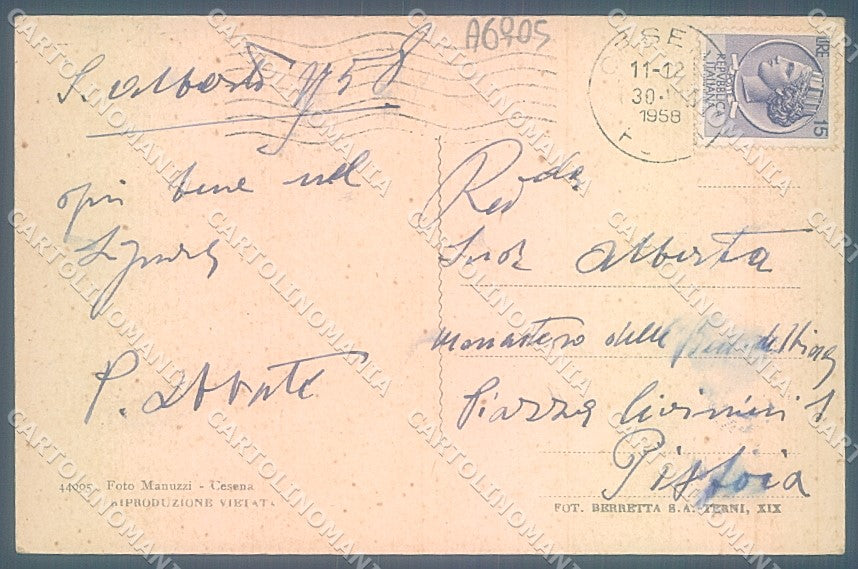 A6905
S. Alberto 1958
ogni bene nel
Signore
P. Abbate
44005 Foto Manuzzi - Cesena
RIPRODUZIONE VIETATA
LIRE 15
REPVBBLICA ITALIANA
11-12
30.
1958
Rev da
Suor Alberta
Monastero delle
Piazza
Pistoia
FOT. BERRETTA S.A. TERNI, XIX
CARTOLINOMANIA